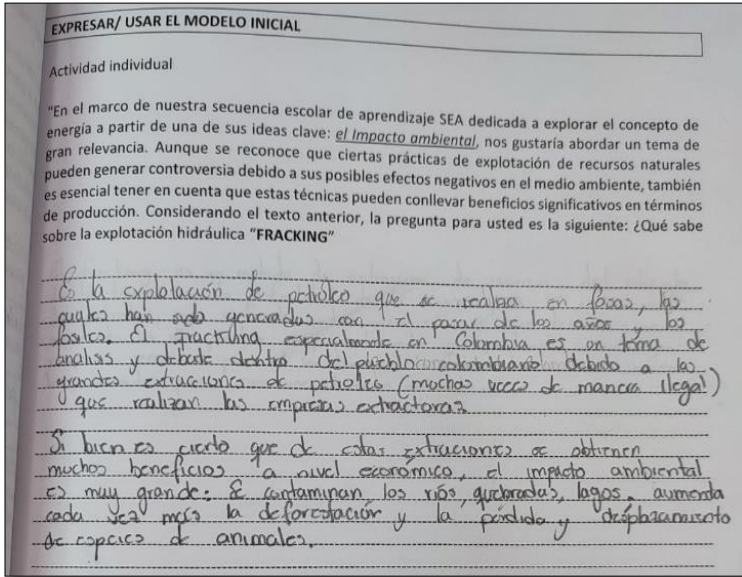 EXPRESAR/ USAR EL MODELO INICIAL
Actividad individual
"En el marco de nuestra secuencia escolar de aprendizaje SEA dedicada a explorar el concepto de
energía a partir de una de sus ideas clave: el Impacto ambiental, nos gustaría abordar un tema de
gran relevancia. Aunque se reconoce que ciertas prácticas de explotación de recursos naturales
pueden generar controversia debido a sus posibles efectos negativos en el medio ambiente, también
es esencial tener en cuenta que estas técnicas pueden conllevar beneficios significativos en términos
de producción. Considerando el texto anterior, la pregunta para usted es la siguiente: ¿Qué sabe
sobre la explotación hidráulica "FRACKING"
Es la explotación de petróleo que se realiza en fosas, las
cuales han sido generadas con el pasar de los años y los
fósiles. El fracking especialmente en Colombia es un tema de
analisis y debate dentro del pueblo colombiano debido a las
grandes extracciones de petroleo (muchas veces de manera ilegal)
que realizan las empresas extractoras
Si bien es cierto que de estas extracciones se obtienen
muchos beneficios a nivel económico, el impacto ambiental
es muy grande: Se contaminan los ríos, quebradas, lagos. aumenta
cada vez más la deforestación y la pérdida y desplazamiento
de especies de animales.